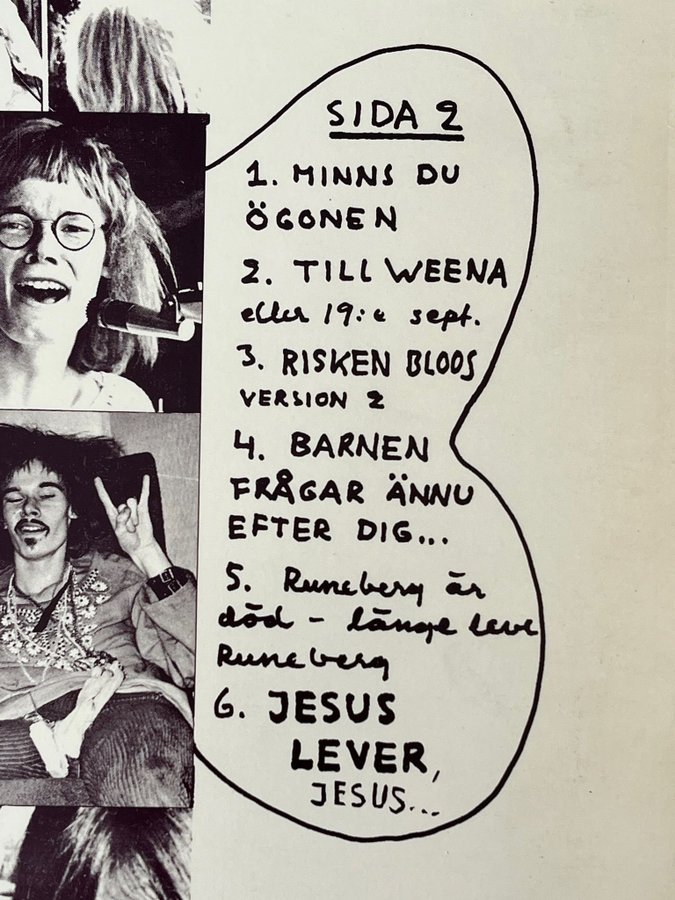 SIDA 2
1. MINNS DU
ÖGONEN
2. TILL WEENA
eller 19:e sept.
3. RISKEN BLOOS
VERSION 2
4. BARNEN
FRÅGAR ÄNNU
EFTER DIG...
5. Runeberg är
död - länge leve
Runeberg
6. JESUS
LEVER,
JESUS...